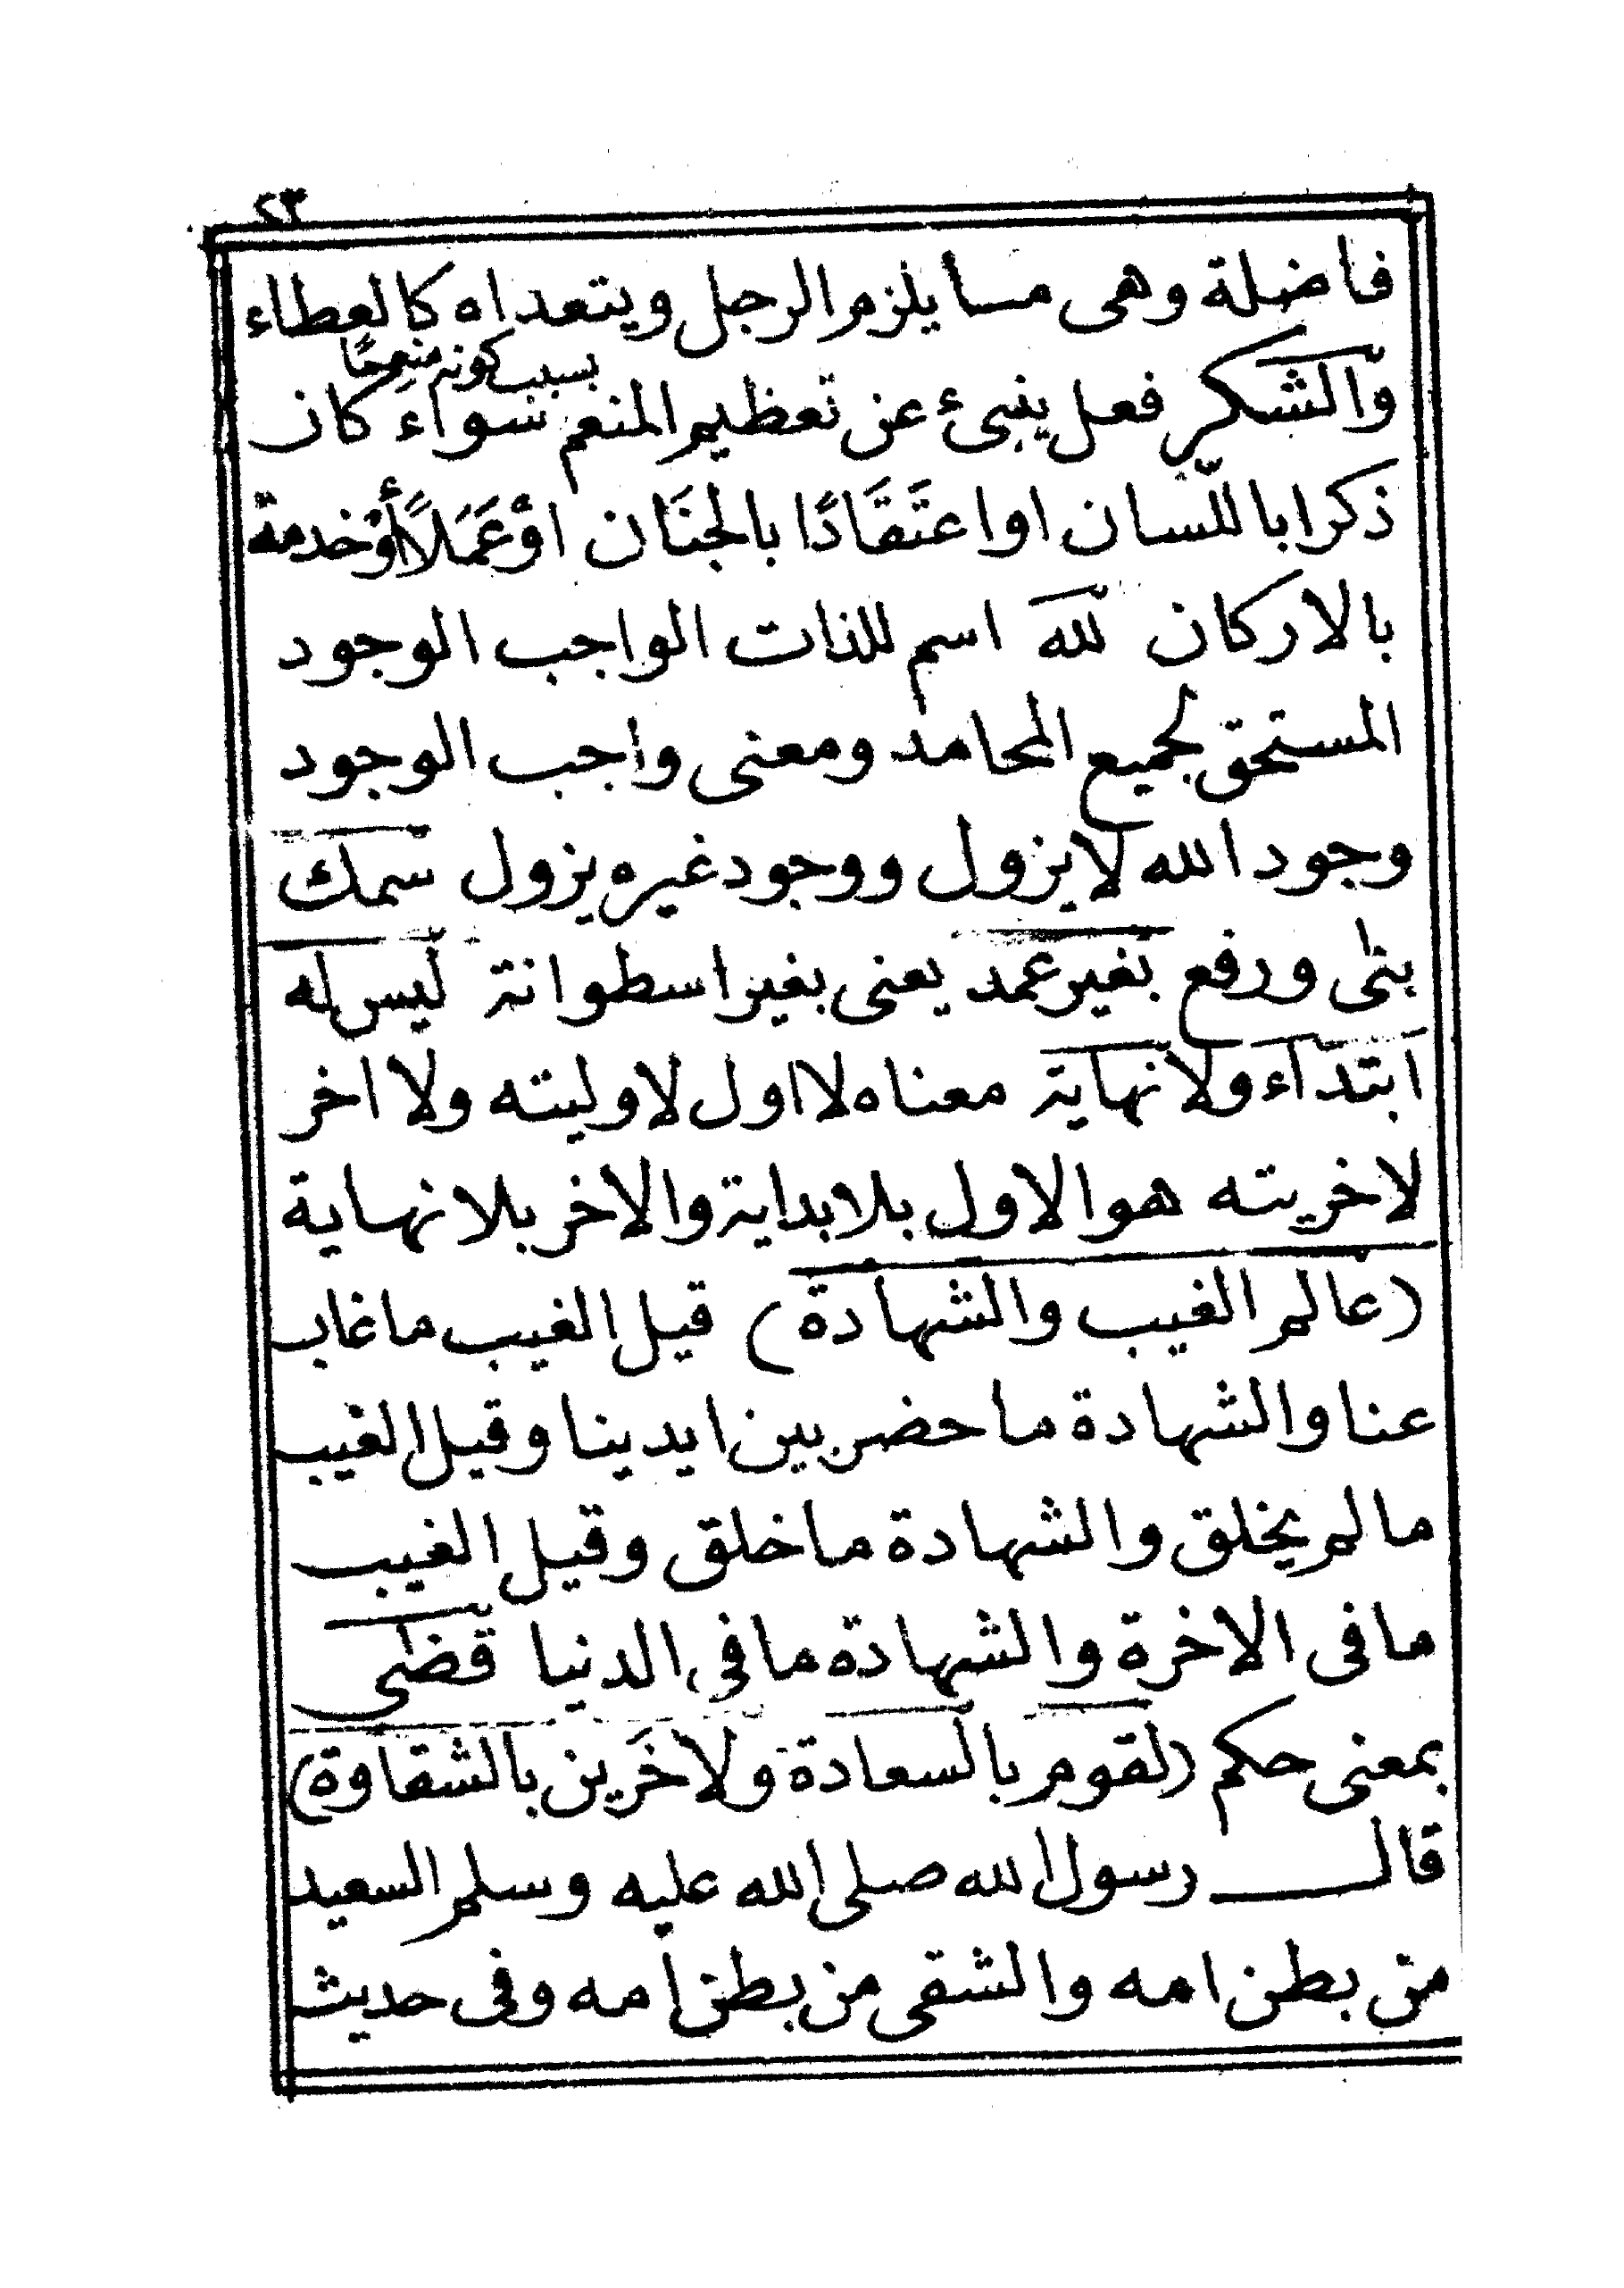 ٢٣
فاضلة وهى مسا يلزم الرجل ويتعداه كالعطاء
والشكر فعل ينبئ عن تعظيم المنعم بسبب كونه منعمًا سواء كان
ذكرا باللسان او اعتَقَادًا بالجنَان اوْ عَمَلًا أوْ خدمة
بالاركان لله اسم للذات الواجب الوجود
المستحق لجميع المحامد ومعنى واجب الوجود
وجود الله لا يزول ووجود غيره يزول سمك
بنٰى ورفع بغير عمد يعنى بغير اسطوانة ليس له
ابتداء ولا نهاية معناه لا اول لاوليته ولا اخر
لاخريته هو الاول بلا بداية والاخر بلا نهاية
(عالم الغيب والشهادة) قيل الغيب ما غاب
عنا والشهادة ما حضر بين ايدينا وقيل الغيب
ما لم يخلق والشهادة ما خلق وقيل الغيب
ما فى الاخرة والشهادة ما فى الدنيا قضٰى
بمعنى حكم (لقوم بالسعادة ولاخَرين بالشقاوة)
قال رسول الله صلى الله عليه وسلم السعيد
من بطن امه والشقى من بطن امه وفى حديث